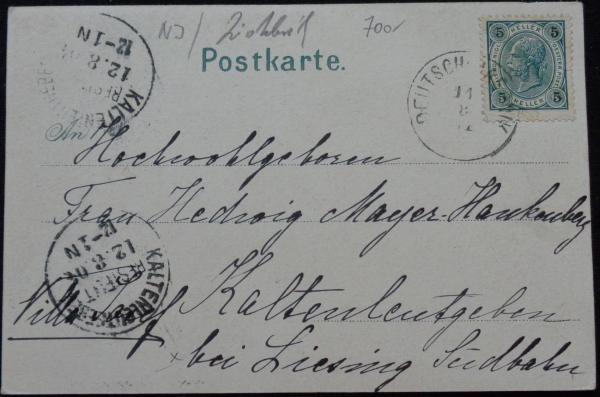 NJ/
700r
Postkarte.
An
Hochwohlgeboren
Frau Hedwig Mayer-Hankenberg
Kaltenleutgeben
Villa
bei Liesing Südbahn
5 HELLER 5
5 HELLER 5
DEUTSCH-
11
8
KALTENLEUTGEBEN
12.8.04
12-1N
KALTENLEUTGEBEN
12.8.04
12-1N